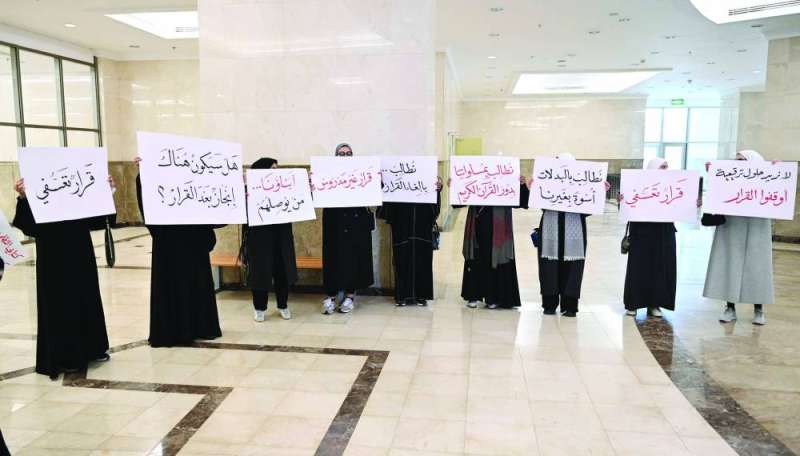 لا نريد حلول ترقيعية
أوقفوا القرار
قرار تعسفي
نطالب بالبدلات
أسوة بغيرنا
نطالب بمساواتنا
بدور القرآن الكريم
نطالب...
بإلغاء القرار
قرار غير مدروس
أبناؤنا...
من يوصلهم
هل سيكون هناك
إنجاز بعد القرار؟
قرار تعسفي